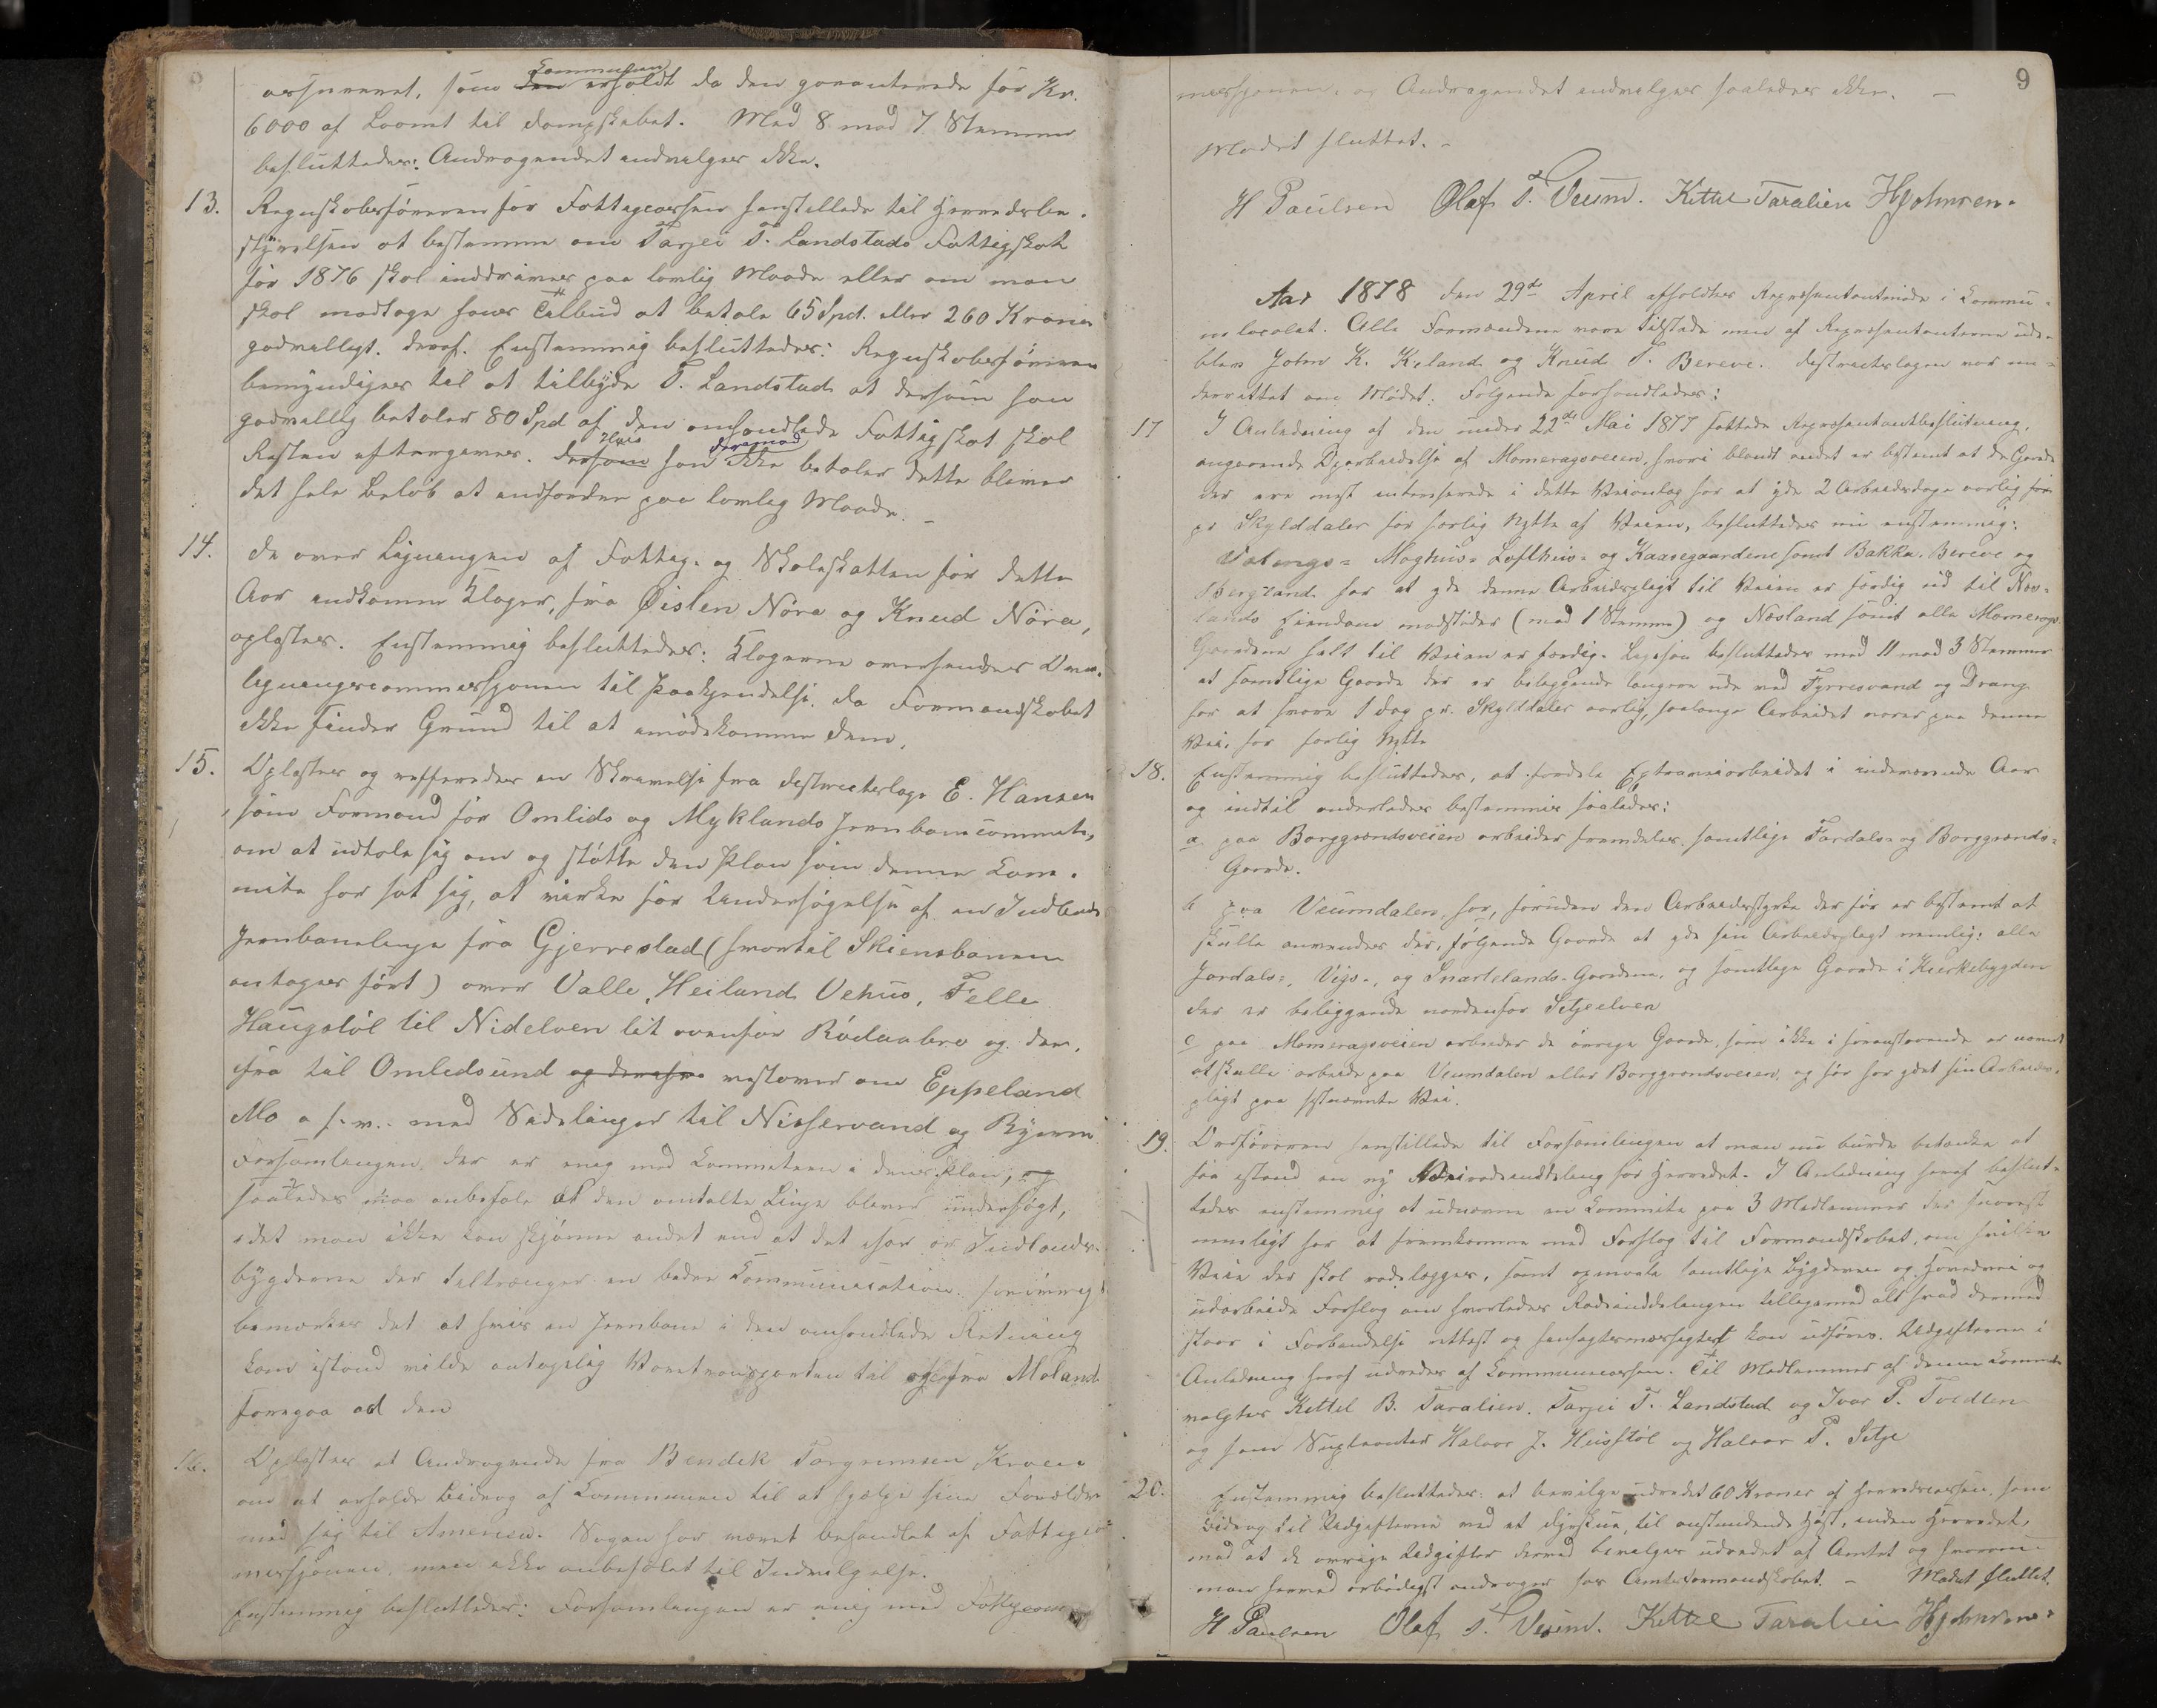 Kommunen
den erholdt da den garanterede for Kr.
6000 af Laanet til Dampskibet. Med 8 mod 7 Stemmer
besluttedes: Andragendet indvilges ikke.
13. Regnskabsføreren for Fattigcassen henstillede til Herredsbe-
styrelsen at bestemme om Tarjei T. Landstads Fattigskat
for 1876 skal inddrives paa lovlig Maade eller om man
skal modtage hans Tilbud at betale 65 Spd. eller 260 Kroner
godvilligt. Enstemmig besluttedes: Regnskabsføreren
bemyndiges til at tilbyde T. Landstad at dersom han
godvillig betaler 80 Spd af den omhandlede Fattigskat skal
Hvis deremod
Resten eftergives. dersom han ikke betaler dette bliver
det hele Beløb at indfordre paa lovlig Maade. –
14. Da over Ligningen af Fattig- og Skoleskatten for dette
Aar indkomne Klager, fra Øislen Nöra og Knud Nöra,
oplæstes. Enstemmig besluttedes: Klagerne oversendes Over-
ligningscommissionen til Paakjendelse, da Formandskabet
ikke finder Grund til at imødekomme dem.
15. Oplæstes og refereredes en Skrivelse fra Distriktslæge E. Hansen
som Formand for Omlids og Myklands Jernbanecommite,
om at udtale sig om og støtte den Plan som denne Com-
mite har sat sig, at virke for Undersøgelse af en Indlands
Jernbanelinje fra Gjerrestad (hvortil Skiensbanen
antages ført) over Valle, Heiland Vehus, Felle
Haugstöl til Nidelven lit ovenfor Rödaabro og der-
ifra til Omlidsund og derifra vestover om Eppeland
Mo o. s. v. med Sidelinger til Nisservand og Byerne
Forsamlingen, der er enig med Commiteen i denes Plan, og
saaledes maa anbefale at den omtalte Linje bliver undersøgt,
idet man ikke kan skjønne andet end at det især er Indlands-
bygderne der tiltrænger en bedre Communication. forøvrigt
bemærkes det at hvis en Jernbane i den omhandlede Retning
kom istand vilde antagelig Varetransporten til og fra Moland
foregaa ad den
16. Oplæstes et Andragende fra Bendik Torgrimsen Kroen
om at erholde Bidrag af Kommunen til at hjælpe sine Forældre
med sig til Amerika. Sagen har været behandlet af Fattigco-
missjonen, men ikke anbefalet til Indvilgelse.
Enstemmig besluttedes: Forsamlingen er enig med Fattigcom-
9
missjonen, og Andragendet indvilges saaledes ikke. –
Mødet sluttet. –
H Paulsen Olaf T. Veum. Kittel Taralien HJohnsen.
Aar 1878 den 29de April afholdtes Repræsentantmøde i Kommu-
nelocalet. Alle Formændene vare tilstede men af Repræsentanterne ude-
blev John K. Kiland og Knud T. Bereve. Distriktslægen var un-
derrettet om Mødet. Følgende forhandledes:
17 I Anledning af den under 22de Mai 1877 fattede Repræsentantbeslutning,
angaaende Oparbeidelse af Momeragsveien, hvori blandt andet er bestemt at de Gaarde
der ere mest interesserede i dette Veianlæg har at yde 2 Arbeidsdage aarlig for
pr Skylddaler for særlig Nytte af Veien, besluttedes nu enstemmig:
Moghus- Lofthus- og Kaasegaardene samt Bakka, Bereve og
Bergland har at yde denne Arbeidspligt til Veien er færdig ud til Nes-
lands Eiendom modstedes (mod 1 Stemme) og Nesland samt alle Momerags
Gaardene helt til Veien er færdig. Ligesaa besluttedes med 11 mod 3 Stemmer
at samtlige Gaarde der er beliggende længere ude ved Fyrresvand og Drang
har at svare 1 Dag pr. Skylddaler aarlig, saalænge Arbeidet varer paa denne
Vei, for særlig Nytte
18. Enstemmig besluttedes, at fordele Extraveiarbeidet i indeværende Aar
og indtil anderledes bestemmes saaledes:
a paa Borggrændsveien arbeider fremdeles samtlige Fardals- og Borggrænds-
Gaarde.
b paa Veumdalen, har, foruden den Arbeidsstyrke der før er bestemt at
skulle anvendes der, følgende Gaarde at yde sin Arbeidspligt nemlig: alle
Jordals-, Vigs-, og Snartelands-Gaardene, og samtlige Gaarde i Kirkebygden
der er beliggende nordenfor Sitjeelven
c paa Momeragsveien arbeider de øvrige Gaarde, som ikke i foranstaaende er nævnt
at skulle arbeide paa Veumdalen eller Borggrændsveien, og før har ydet sin Arbeids-
pligt paa sidstnævnte Vei.
19. Ordføreren henstillede til Forsamlingen at man nu burde betænke at
faa istand en ny Veirodeinddeling for Herredet. I Anledning heraf beslut-
tedes enstemmig at udnævne en Commite paa 3 Medlemmer der snarest
muligt har at fremkomme med Forslag til Formandskabet, om hvilke
Veie der skal rodelægges, samt opmaale samtlige Bygdeveie og Hovedvei og
udarbeide Forslag om hvorledes Rodeinddelingen tilligemed alt hvad dermed
staar i Forbindelse rettest og hensigtsmæssigst kan udføres. Udgifterne i
Anledning heraf udredes af Communecassen. Til Medlemmer af denne Commite
valgtes Kittel B. Taralien, Tarjei T. Landstad og Ivar P. Tvedten
og som Supleanter Halvor J. Husstöl og Halvor P. Sitje
20. Enstemmig besluttedes: at bevilge udredet 60 Kroner af Herredscassen, som
Bidrag til Udgifterne ved et Dyrskue, til anstundende Høst, inden Herredet,
mod at de øvrige Udgifter derved bevilges udredet af Amtet og hvorom
man herved ærbødigst andrager hos Amtsformandskabet. – Mødet sluttet.
H Paulsen Olaf T. Veum. Kittel Taralien HJohnsen.